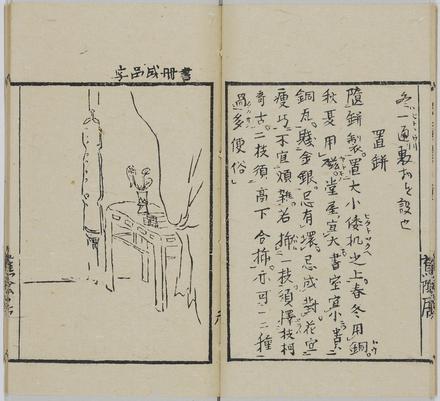 置缾
隨缾製置大小倭机之上春冬用銅
秋夏用磁堂屋宜大書室宜小貴
銅瓦賤金銀忌有環忌成對花宜
瘦巧不宜煩雜若揷一枝須擇枝柯
奇古二枝須高下合揷亦可一二種
過多便俗
書冊成品字